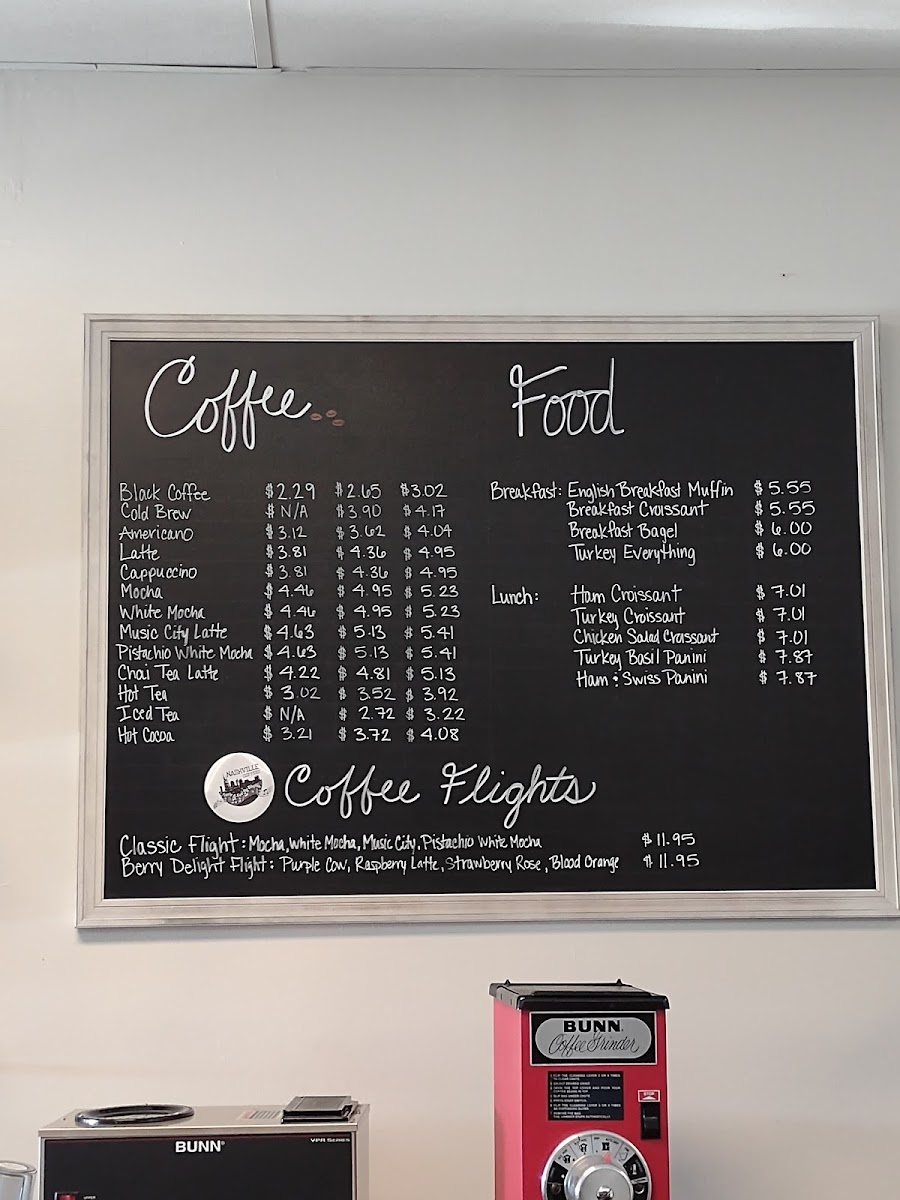 Coffee
Black Coffee $2.29 $2.65 $3.02
Cold Brew $ N/A $3.90 $4.17
Americano $3.12 $3.62 $4.04
Latte $3.81 $4.36 $4.95
Cappuccino $3.81 $4.36 $4.95
Mocha $4.46 $4.95 $5.23
White Mocha $4.46 $4.95 $5.23
Music City Latte $4.63 $5.13 $5.41
Pistachio White Mocha $4.63 $5.13 $5.41
Chai Tea Latte $4.22 $4.81 $5.13
Hot Tea $3.02 $3.52 $3.92
Iced Tea $ N/A $2.72 $3.22
Hot Cocoa $3.21 $3.72 $4.08
Food
Breakfast: English Breakfast Muffin $5.55
Breakfast Croissant $5.55
Breakfast Bagel $6.00
Turkey Everything $6.00
Lunch: Ham Croissant $7.01
Turkey Croissant $7.01
Chicken Salad Croissant $7.01
Turkey Basil Panini $7.87
Ham & Swiss Panini $7.87
NASHVILLE
Coffee Flights
Classic Flight: Mocha, White Mocha, Music City, Pistachio White Mocha $11.95
Berry Delight Flight: Purple Cow, Raspberry Latte, Strawberry Rose, Blood Orange $11.95
BUNN
Coffee Grinder
STOP
BUNN
VPR SERIES